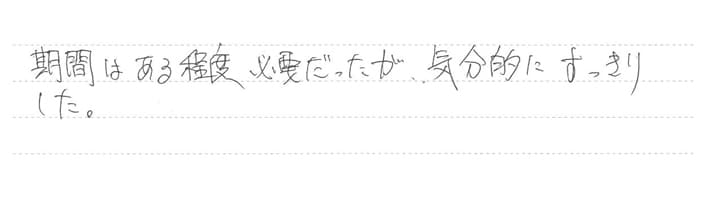 期間はある程度必要だったが、気分的にすっきり
した。